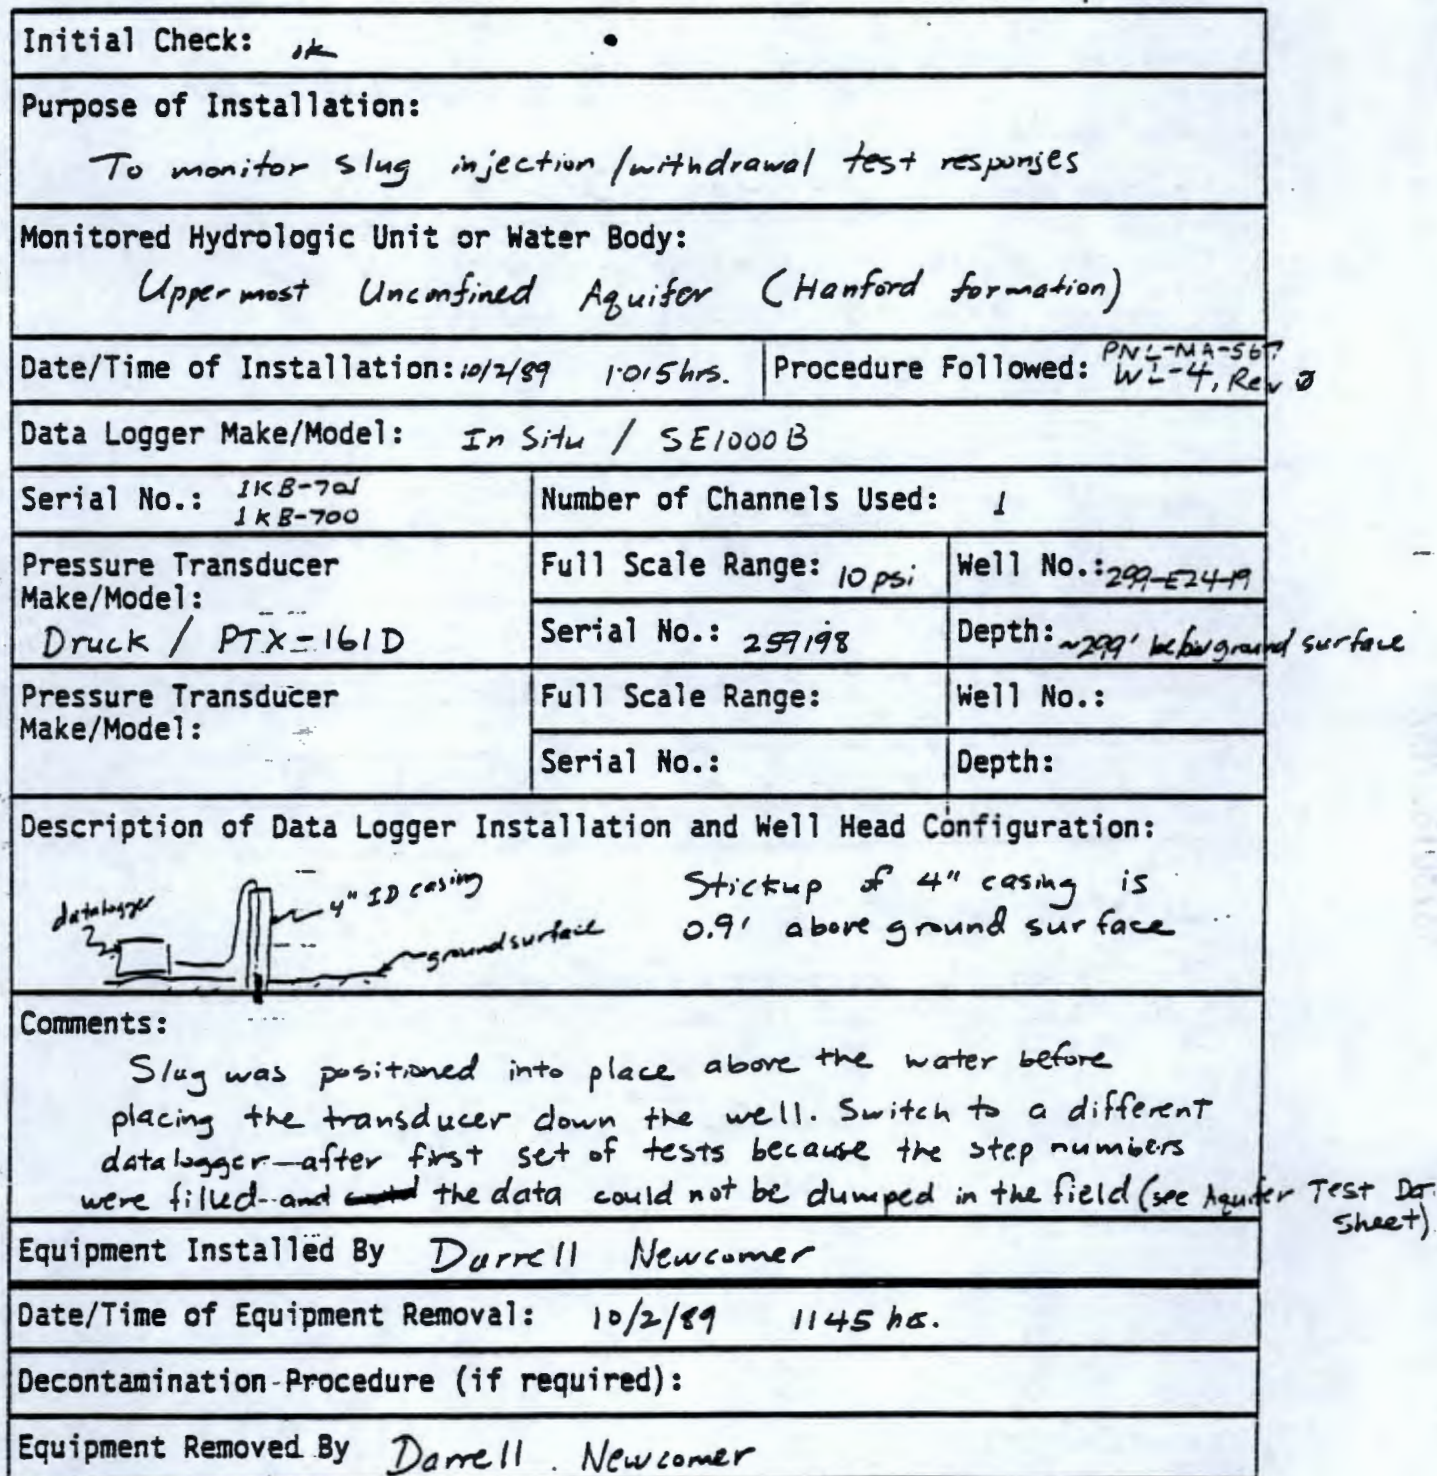 Initial Check: ok
Purpose of Installation:
To monitor slug injection/withdrawal test responses
Monitored Hydrologic Unit or Water Body:
Uppermost Unconfined Aquifer (Hanford formation)
Date/Time of Installation: 10/2/89 1015 hrs. Procedure Followed: PNL-MA-567
WL-4, Rev 0
Data Logger Make/Model: In Situ / SE1000B
Serial No.: 1KB-701 Number of Channels Used: 1
1KB-700
Pressure Transducer Full Scale Range: 10 psi Well No.: 299-E24-19
Make/Model:
Druck / PTX-161D Serial No.: 259198 Depth: ~299' below ground surface
Pressure Transducer Full Scale Range: Well No.:
Make/Model:
Serial No.: Depth:
Description of Data Logger Installation and Well Head Configuration:
datalogger 4" ID casing Stickup of 4" casing is
ground surface 0.9' above ground surface
Comments:
Slug was positioned into place above the water before
placing the transducer down the well. Switch to a different
datalogger—after first set of tests because the step numbers
were filled and the data could not be dumped in the field (see Aquifer Test
Sheet)
Equipment Installed By Darrell Newcomer
Date/Time of Equipment Removal: 10/2/89 1145 hrs.
Decontamination Procedure (if required):
Equipment Removed By Darrell Newcomer